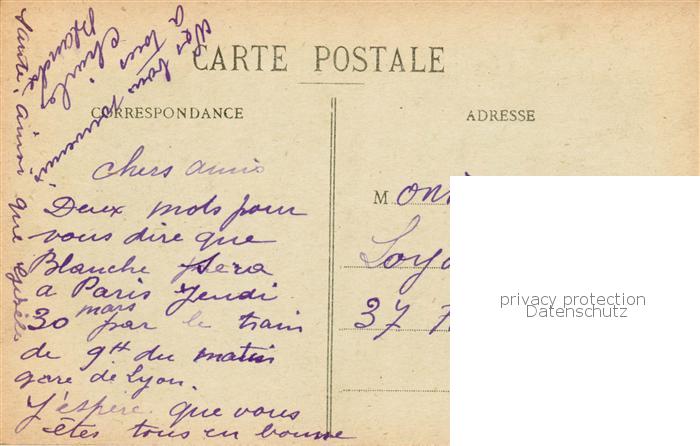 CARTE POSTALE
CORRESPONDANCE
ADRESSE
Chers amis
Deux mots pour
vous dire que
Blanche sera
a Paris Jeudi
30 mars par le train
de 9H du matin
gare de Lyon.
J'espère que vous
êtes tous en bonne
santé, ainsi que
Bons souvenirs
à tous
Charles
Blanche
M
37
privacy protection
Datenschutz